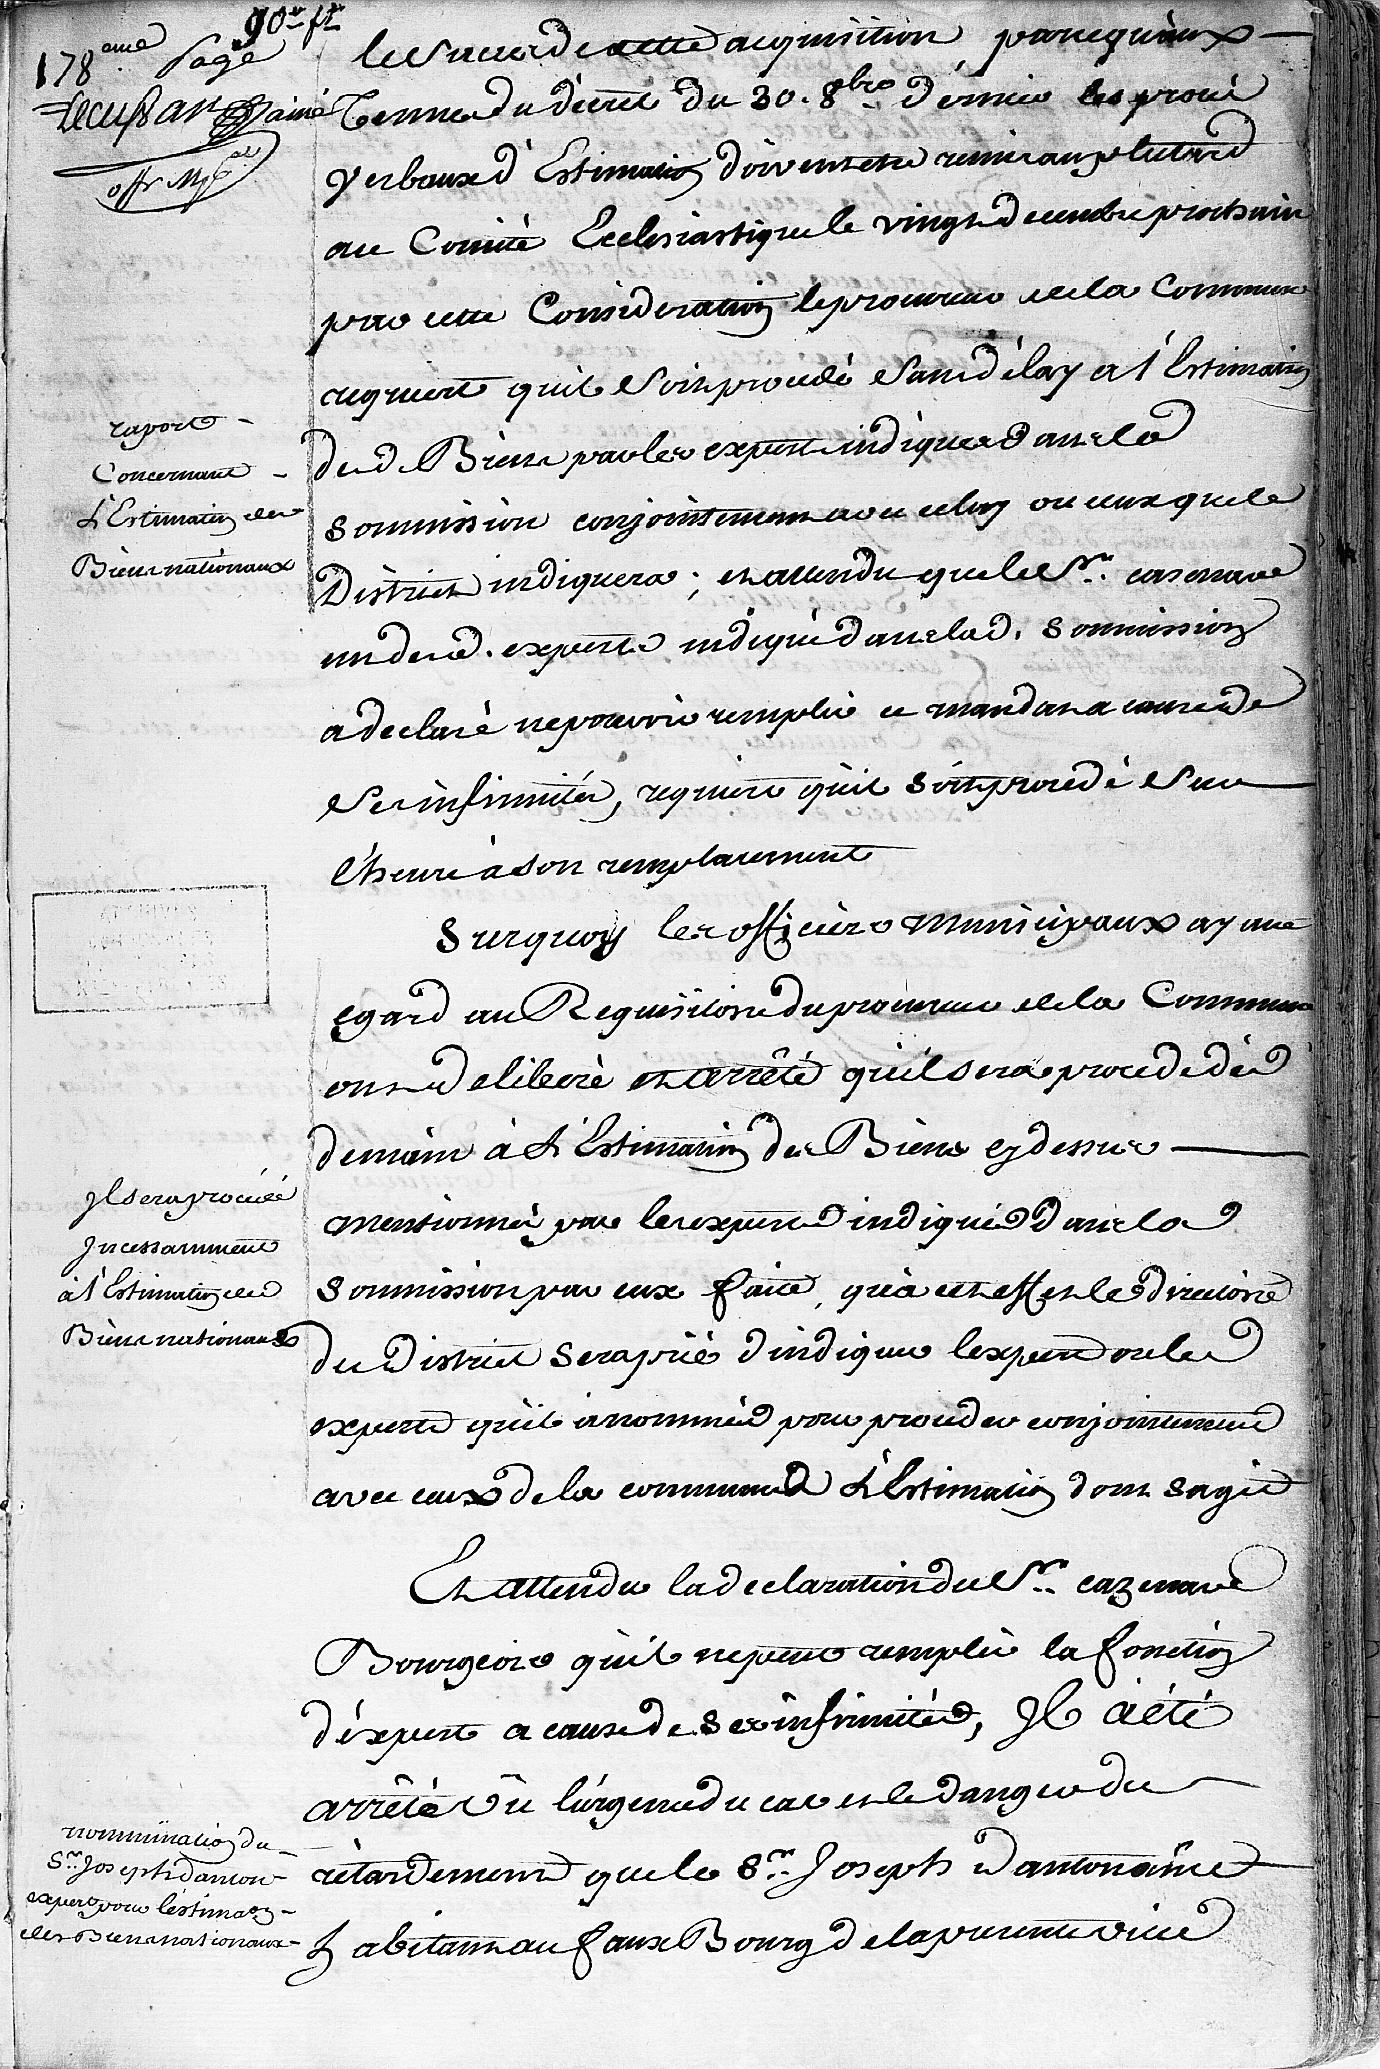 90e ft
178eme page
Lecussan ainé
offr Mpal
le succes de cette acquisition parce qu'aux
Termes du décret du 30. 8bre dernier les procés
verbaux d'Estimation doivent etre remis au plutard
au Comité Ecclesiastique le vingt decembre prochain
par cette Consideration le procureur de la Commune
requiert quil soit procédé sans délay a l'Estimation
desd. Biens par les experts indiqués dans la
sommission conjointement avec celuy ou ceux que le
District indiquera ; et attendu que le Sr. casenave
un desd. experts indiqué dans lad. sommission
a declaré ne pouvoir remplir ce mandat a cause de
ses infirmités, requiert qu'il soit procedé sur
l'heure à son remplacement
raport
Concernant
L'Estimation des
Biens nationaux
Surquoy les officiers municipaux ayant
egard au Requisitoire du procureur de la Commune
ont deliberé et arrêté qu'il sera procedé dés
demain à L'Estimation des Biens cy dessus
mentionnés par les experts indiqués dans la
sommission par eux faite, qu'à cet effet le directoire
du District sera prié d'indiquer l'expert ou les
experts qu'il a nommés pour proceder conjointement
avec ceux de la commune à L'Estimation dont sagit
Il sera procédé
Incessamment
à l'Estimation des
Biens nationaux
Et attendu la declaration du Sr. cazenave
Bourgeois qu'il ne peut remplir la fonction
d'éxpert a cause de ses infirmités, Il à été
arrêté vû l'urgence du cas et le danger du
rétardement que le Sr. Joseph danton ainé
habitant au faux Bourg de la presente ville
nommination du
Sr. Joseph danton
expert pour l'estimaon
des Biens nationaux